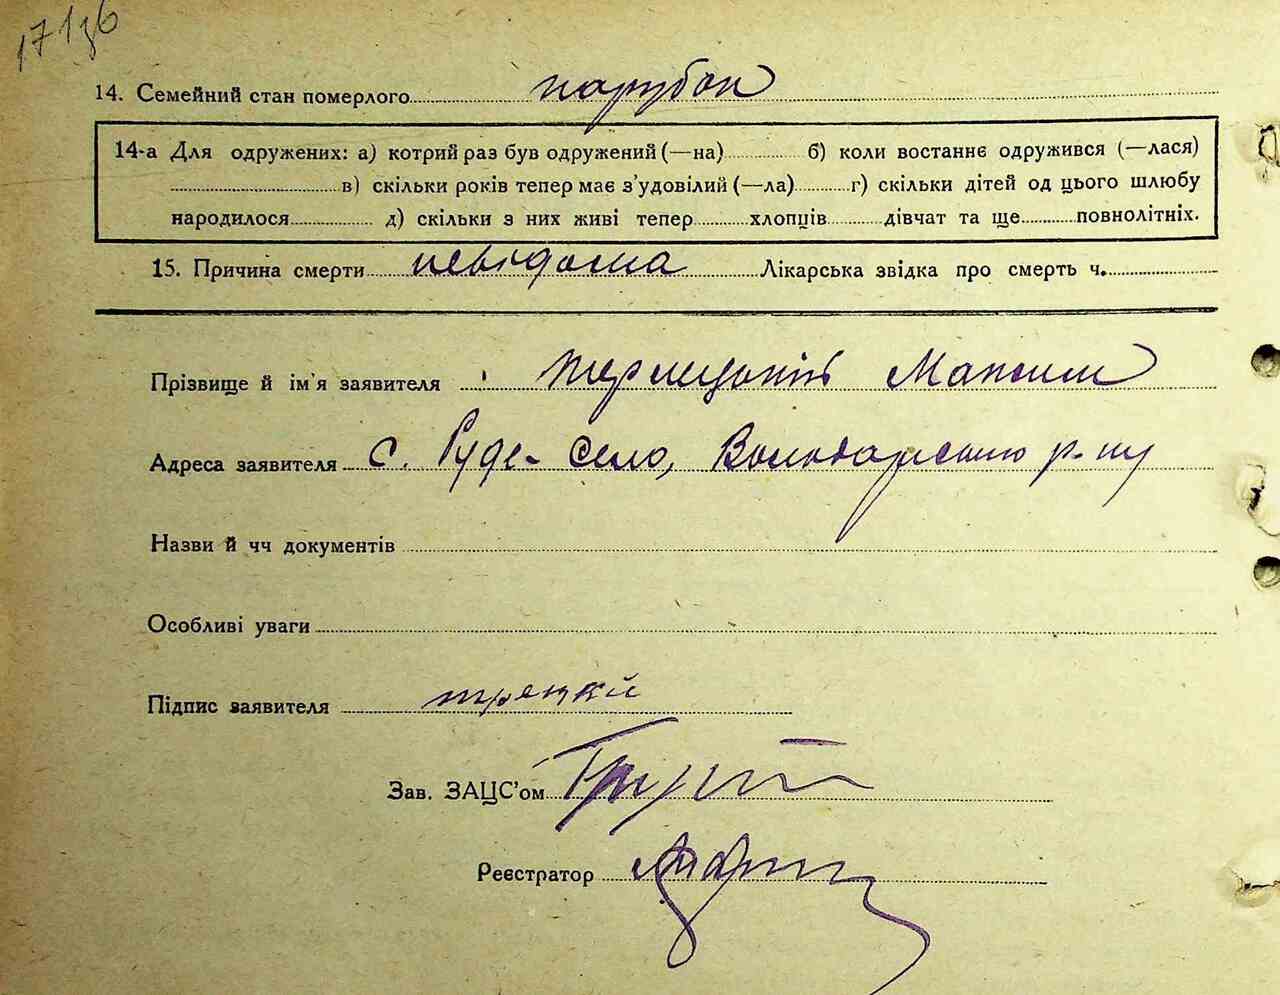 14. Семейний стан померлого парубок
14-а Для одружених: а) котрий раз був одружений (—на) б) коли востаннє одружився (—лася)
в) скільки років тепер має з’удовілий (—ла) г) скільки дітей од цього шлюбу
народилося д) скільки з них живі тепер хлопців дівчат та ще повнолітніх.
15. Причина смерти невідома Лікарська звідка про смерть ч.
Прізвище й ім’я заявителя Максим
Адреса заявителя с. Руде-Село, Володарського р-ну
Назви й чч документів
Особливі уваги
Підпис заявителя
Зав. ЗАЦС’ом
Реєстратор